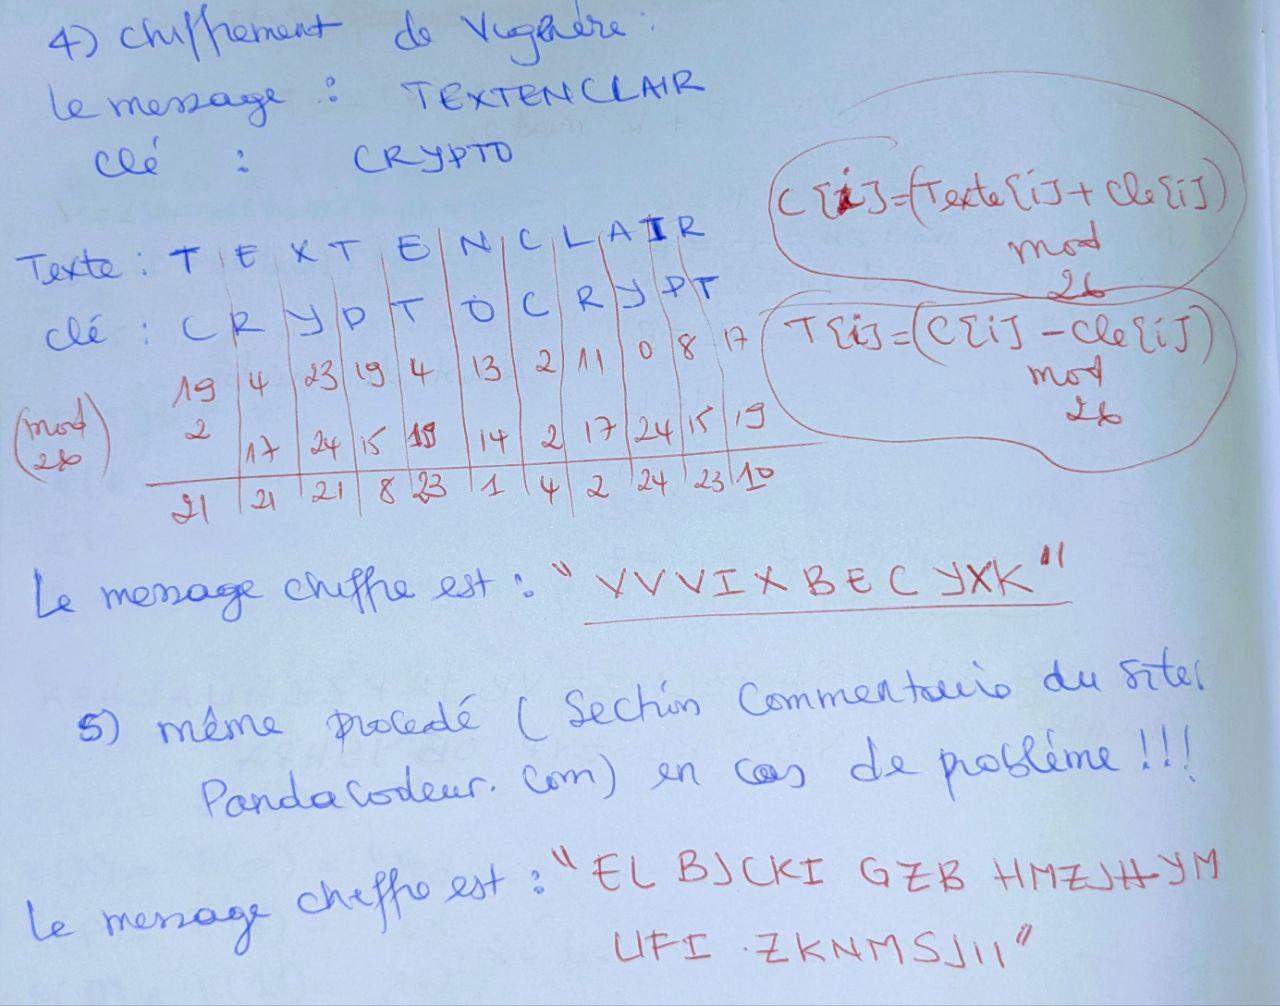 4) chiffrement de Vigenère :
le message : TEXTENCLAIR
clé : CRYPTO
C[i]=(Texte[i]+Cle[i])
mod
26
Texte : T E X T E N C L A I R
clé : C R Y P T O C R Y P T
T[i]=(C[i] - Cle[i])
mod
26
19 4 23 19 4 13 2 11 0 8 17
(mod 26)
2 17 24 15 19 14 2 17 24 15 19
21 21 21 8 23 1 4 2 24 23 10
Le message chiffre est : "VVVIXBECYXK"
5) même procedé ( Section Commentaire du site
PandaCodeur. Com) en cas de problème !!!
Le message chiffre est : "EL BJCKI GZB HMZJHYM
UFI ZKNMSJII"